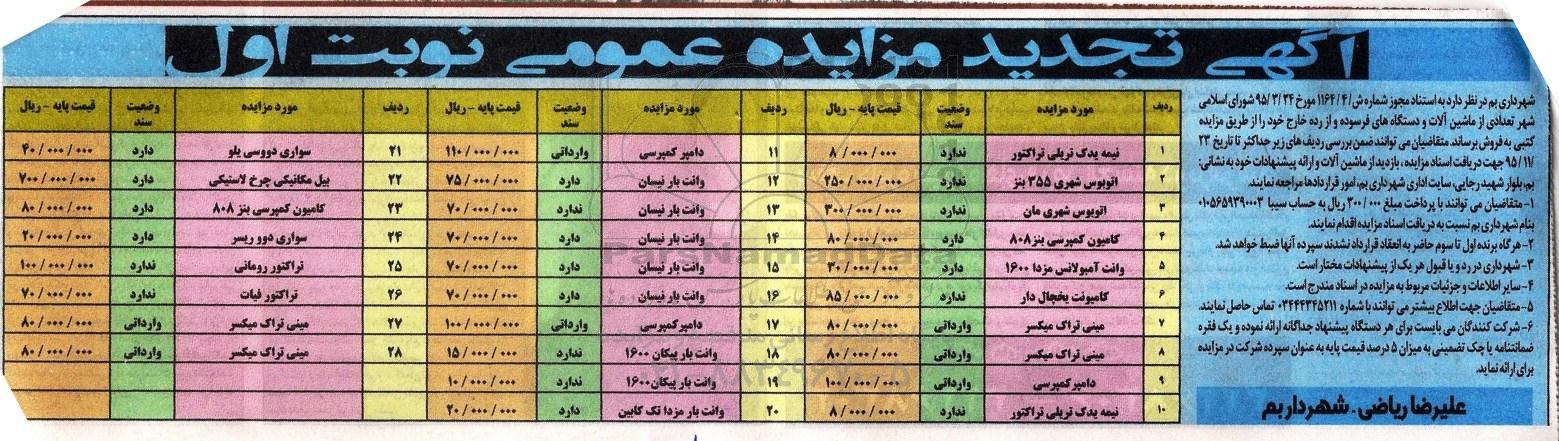 آگهی تجدید مزایده عمومی نوبت اول
شهرداری بم در نظر دارد به استناد مجوز شماره ش/۴/ ۱۱۶۴ مورخ ۹۵/۳/۲۴ شورای اسلامی
شهر تعدادی از ماشین آلات و دستگاه های فرسوده و از رده خارج خود را از طریق مزایده
کتبی به فروش برساند. متقاضیان می توانند ضمن بررسی ردیف های زیر حداکثر تا تاریخ ۲۳
/۹۵/۱۱ جهت دریافت اسناد مزایده ، بازدید از ماشین آلات و ارائه پیشنهادات خود به نشانی:
بم، بلوار شهید رجایی، سایت اداری شهرداری بم، امور قراردادها مراجعه نمایند.
۱- متقاضیان می توانند با پرداخت مبلغ ۳۰۰/۰۰۰ ریال به حساب سیبا ۰۱۰۵۶۵۹۳۹۰۰۰۳
بنام شهرداری بم نسبت به دریافت اسناد مزایده اقدام نمایند.
۲- هرگاه برنده اول تا سوم حاضر به انعقاد قرارداد نشدند سپرده آنها ضبط خواهد شد.
۳- شهرداری در رد و یا قبول هر یک از پیشنهادات مختار است.
۴- سایر اطلاعات و جزئیات مربوط به مزایده در اسناد مندرج است.
۵- متقاضیان جهت اطلاع بیشتر می توانند با شماره ۰۳۴۴۴۳۴۵۲۱۱ تماس حاصل نمایند.
۶- شرکت کنندگان می بایست برای هر دستگاه پیشنهاد جداگانه ارائه نموده و یک فقره
ضمانتنامه یا چک تضمینی به میزان ۵ درصد قیمت پایه به عنوان سپرده شرکت در مزایده
برای ارائه نماید.
علیرضا ریاضی - شهردار بم
ردیف مورد مزایده وضعیت سند قیمت پایه - ریال
۱ نیمه یدک تریلی تراکتور ندارد ۸/۰۰۰/۰۰۰
۲ اتوبوس شهری ۳۵۵ بنز ندارد ۲۵۰/۰۰۰/۰۰۰
۳ اتوبوس شهری مان ندارد ۳۰۰/۰۰۰/۰۰۰
۴ کامیون کمپرسی بنز ۸۰۸ دارد ۸۰/۰۰۰/۰۰۰
۵ وانت آمبولانس مزدا ۱۶۰۰ دارد ۳۰/۰۰۰/۰۰۰
۶ کامیونت یخچال دار ندارد ۸۵/۰۰۰/۰۰۰
۷ مینی تراک میکسر وارداتی ۸۰/۰۰۰/۰۰۰
۸ مینی تراک میکسر وارداتی ۸۰/۰۰۰/۰۰۰
۹ دامپر کمپرسی وارداتی ۱۰۰/۰۰۰/۰۰۰
۱۰ نیمه یدک تریلی تراکتور ندارد ۸/۰۰۰/۰۰۰
ردیف مورد مزایده وضعیت سند قیمت پایه - ریال
۱۱ دامپر کمپرسی وارداتی ۱۱۰/۰۰۰/۰۰۰
۱۲ وانت بار نیسان دارد ۷۵/۰۰۰/۰۰۰
۱۳ وانت بار نیسان ندارد ۷۰/۰۰۰/۰۰۰
۱۴ وانت بار نیسان دارد ۷۰/۰۰۰/۰۰۰
۱۵ وانت بار نیسان دارد ۷۰/۰۰۰/۰۰۰
۱۶ وانت بار نیسان دارد ۷۰/۰۰۰/۰۰۰
۱۷ دامپر کمپرسی وارداتی ۱۰۰/۰۰۰/۰۰۰
۱۸ وانت بار پیکان ۱۶۰۰ ندارد ۱۵/۰۰۰/۰۰۰
۱۹ وانت بار پیکان ۱۶۰۰ ندارد ۱۰/۰۰۰/۰۰۰
۲۰ وانت بار مزدا تک کابین دارد ۲۰/۰۰۰/۰۰۰
ردیف مورد مزایده وضعیت سند قیمت پایه - ریال
۲۱ سواری دووسی یلو دارد ۴۰/۰۰۰/۰۰۰
۲۲ بیل مکانیکی چرخ لاستیکی دارد ۷۰۰/۰۰۰/۰۰۰
۲۳ کامیون کمپرسی بنز ۸۰۸ دارد ۸۰/۰۰۰/۰۰۰
۲۴ سواری دوو ریسر دارد ۲۰/۰۰۰/۰۰۰
۲۵ تراکتور رومانی ندارد ۱۰۰/۰۰۰/۰۰۰
۲۶ تراکتور فیات ندارد ۷۰/۰۰۰/۰۰۰
۲۷ مینی تراک میکسر وارداتی ۸۰/۰۰۰/۰۰۰
۲۸ مینی تراک میکسر وارداتی ۸۰/۰۰۰/۰۰۰
ParsNamadData